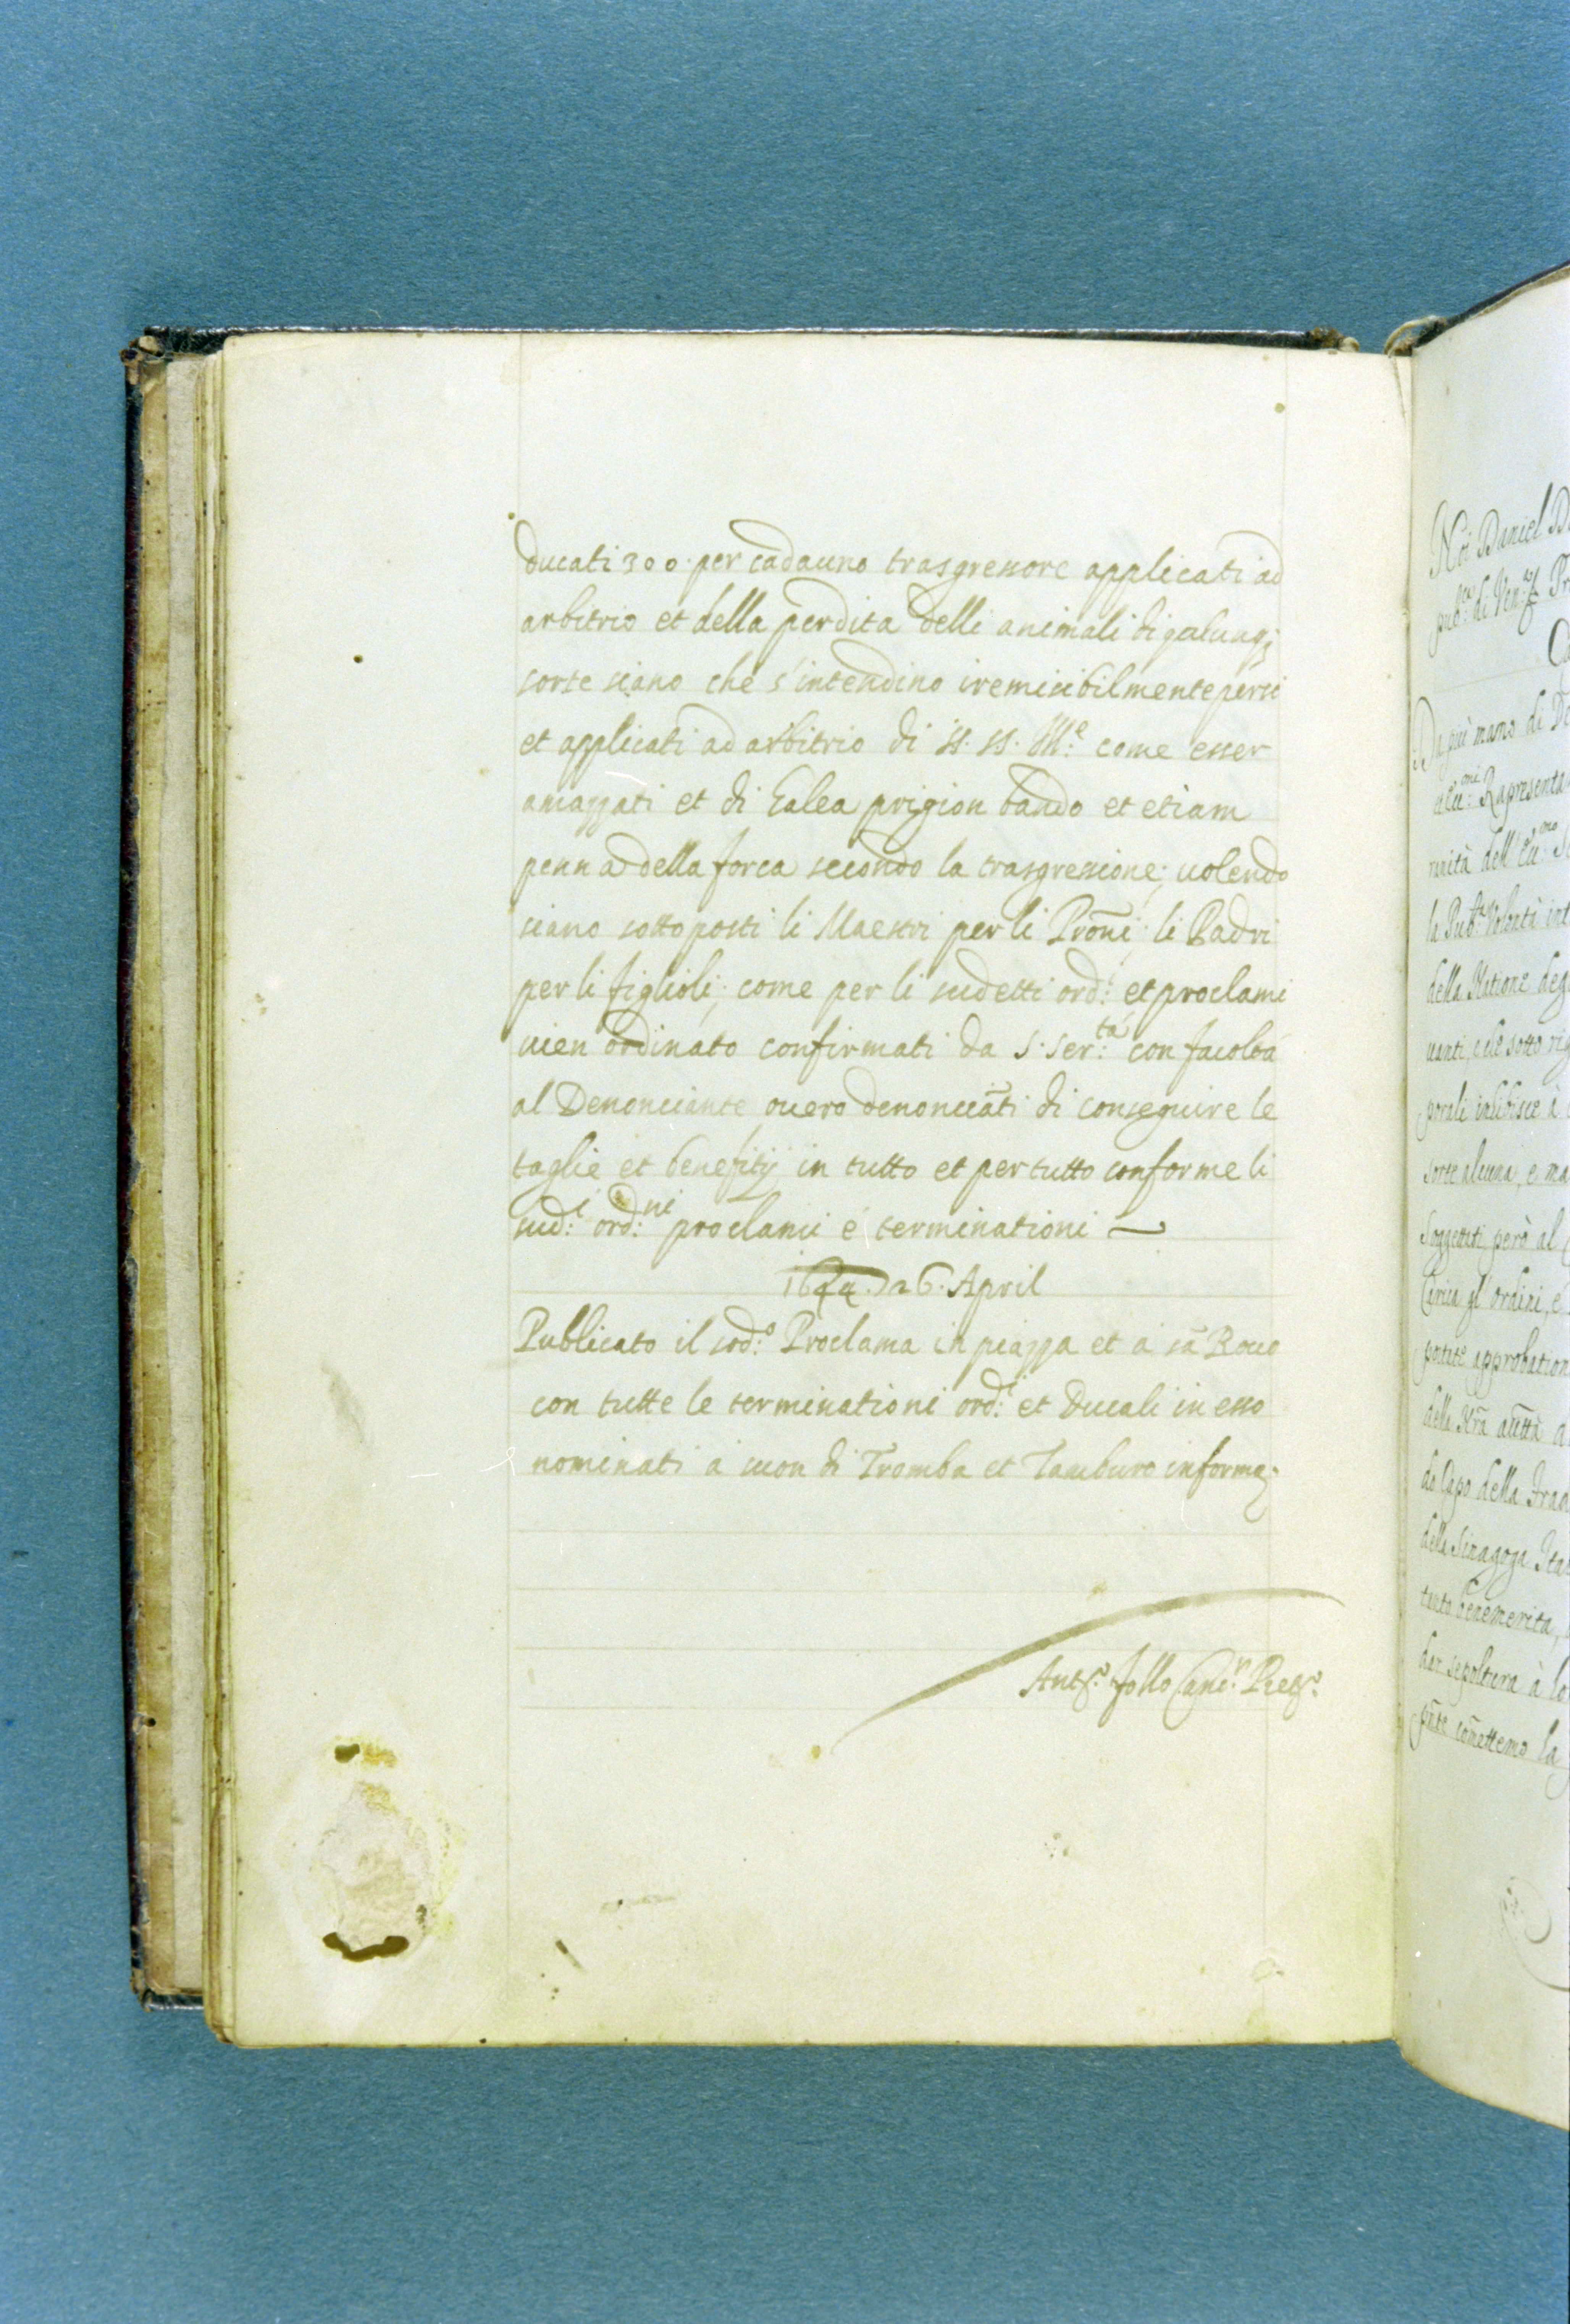 ducati 300 · per cadauno trasgressore applicati ad
arbitrio et della perdita delli animali di qualunq;
sorte siano che s'intendino iremisibilmente persi
et applicati ad arbitrio di SS. SS. Ill.e come esser
amazzati et di Galea prigion bando et etiam
penna della forca secondo la trasgressione; uolendo
siano sottoposti li Maestri per li Proñi; li Padri
per li figlioli; come per li sudetti ord:i et proclami
uien ordinato confirmati da S. Ser:tà con facoltà
al Denonciante ouero denonciāti di conseguire le
taglie et benefitij in tutto et per tutto conforme li
sud:i ord:ni proclami é terminationi —
26. April
Publicato il sod:o Proclama in piazza et á sā Roco
con tutte le terminationi ord:i et Ducali in esso
nominati á suon di Tromba et Tamburo in forma;
follo Canc:r Pret:o
Noi Daniel
pub:co di Ven:a
Da più mano di
Rapresenta
renità dell'
la Pub:a Volontà int
della Natione
uanti, e le sotto
porali inibisce à
sorte alcuna, e ma
Soggetti però al
Carica gl'ordini, é
approbation
della Nrā autttà a
da Capo della
della Sinagoga Ita
tanto benemerita,
dar sepoltura à lo
pñte comettemo la